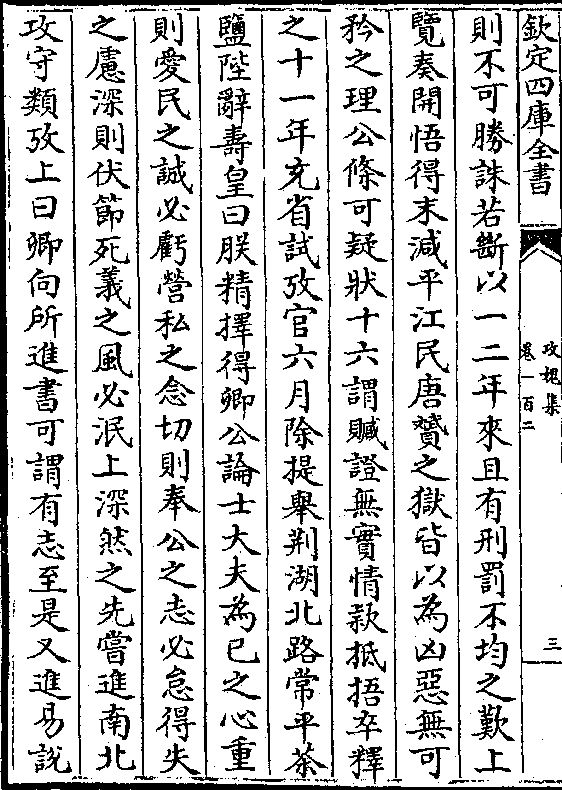 欽定四庫全書
攻媿集
卷一百二
三
則不可勝誅若斷以一二年來且有刑罰不均之歎上
覽奏開悟得末減平江民唐贇之獄皆以為凶惡無可
矜之理公條可疑狀十六謂贓證無實情款抵捂卒釋
之十一年充省試攷官六月除提舉荆湖北路常平茶
鹽陛辭壽皇曰朕精擇得卿公論士大夫為已之心重
則愛民之誠必虧營私之念切則奉公之志必怠得失
之慮深則伏節死義之風必泯上深然之先嘗進南北
攻守類攷上曰卿向所進書可謂有志至是又進易說